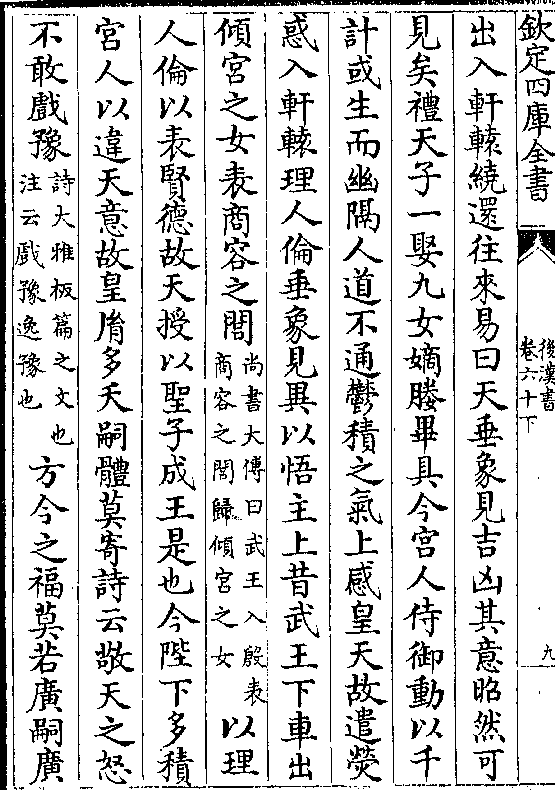 欽定四庫全書
後漢書
卷六十下
九
出入軒轅繞還往來易曰天垂象見吉凶其意昭然可
見矣禮天子一娶九女嫡媵畢具今宮人侍御動以千
計或生而幽隔人道不通鬱積之氣上感皇天故遣熒
惑入軒轅理人倫垂象見異以悟主上昔武王下車出
傾宮之女表商容之閭
尚書大傳曰武王入殷表
商容之閭歸傾宮之女
以理
人倫以表賢德故天授以聖子成王是也今陛下多積
宮人以違天意故皇胤多夭嗣體莫寄詩云敬天之怒
不敢戲豫
詩大雅板篇之文也
注云戲豫逸豫也
方今之福莫若廣嗣廣